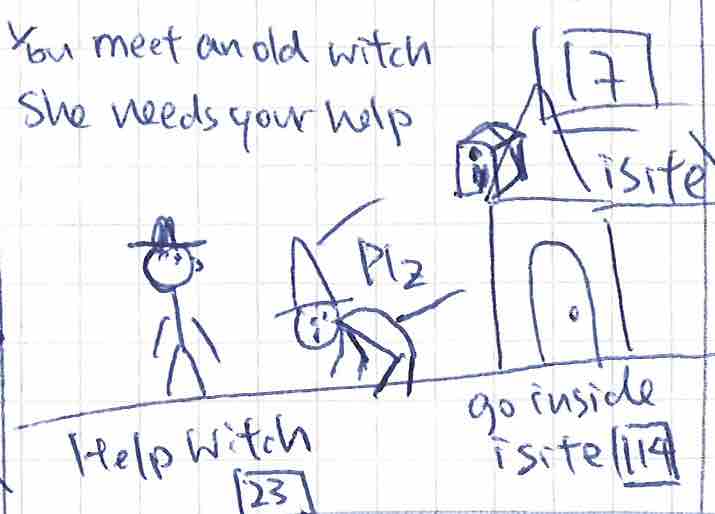 You meet an old witch
She needs your help
17
i
isite
Plz
Help Witch
23
go inside
isite 114